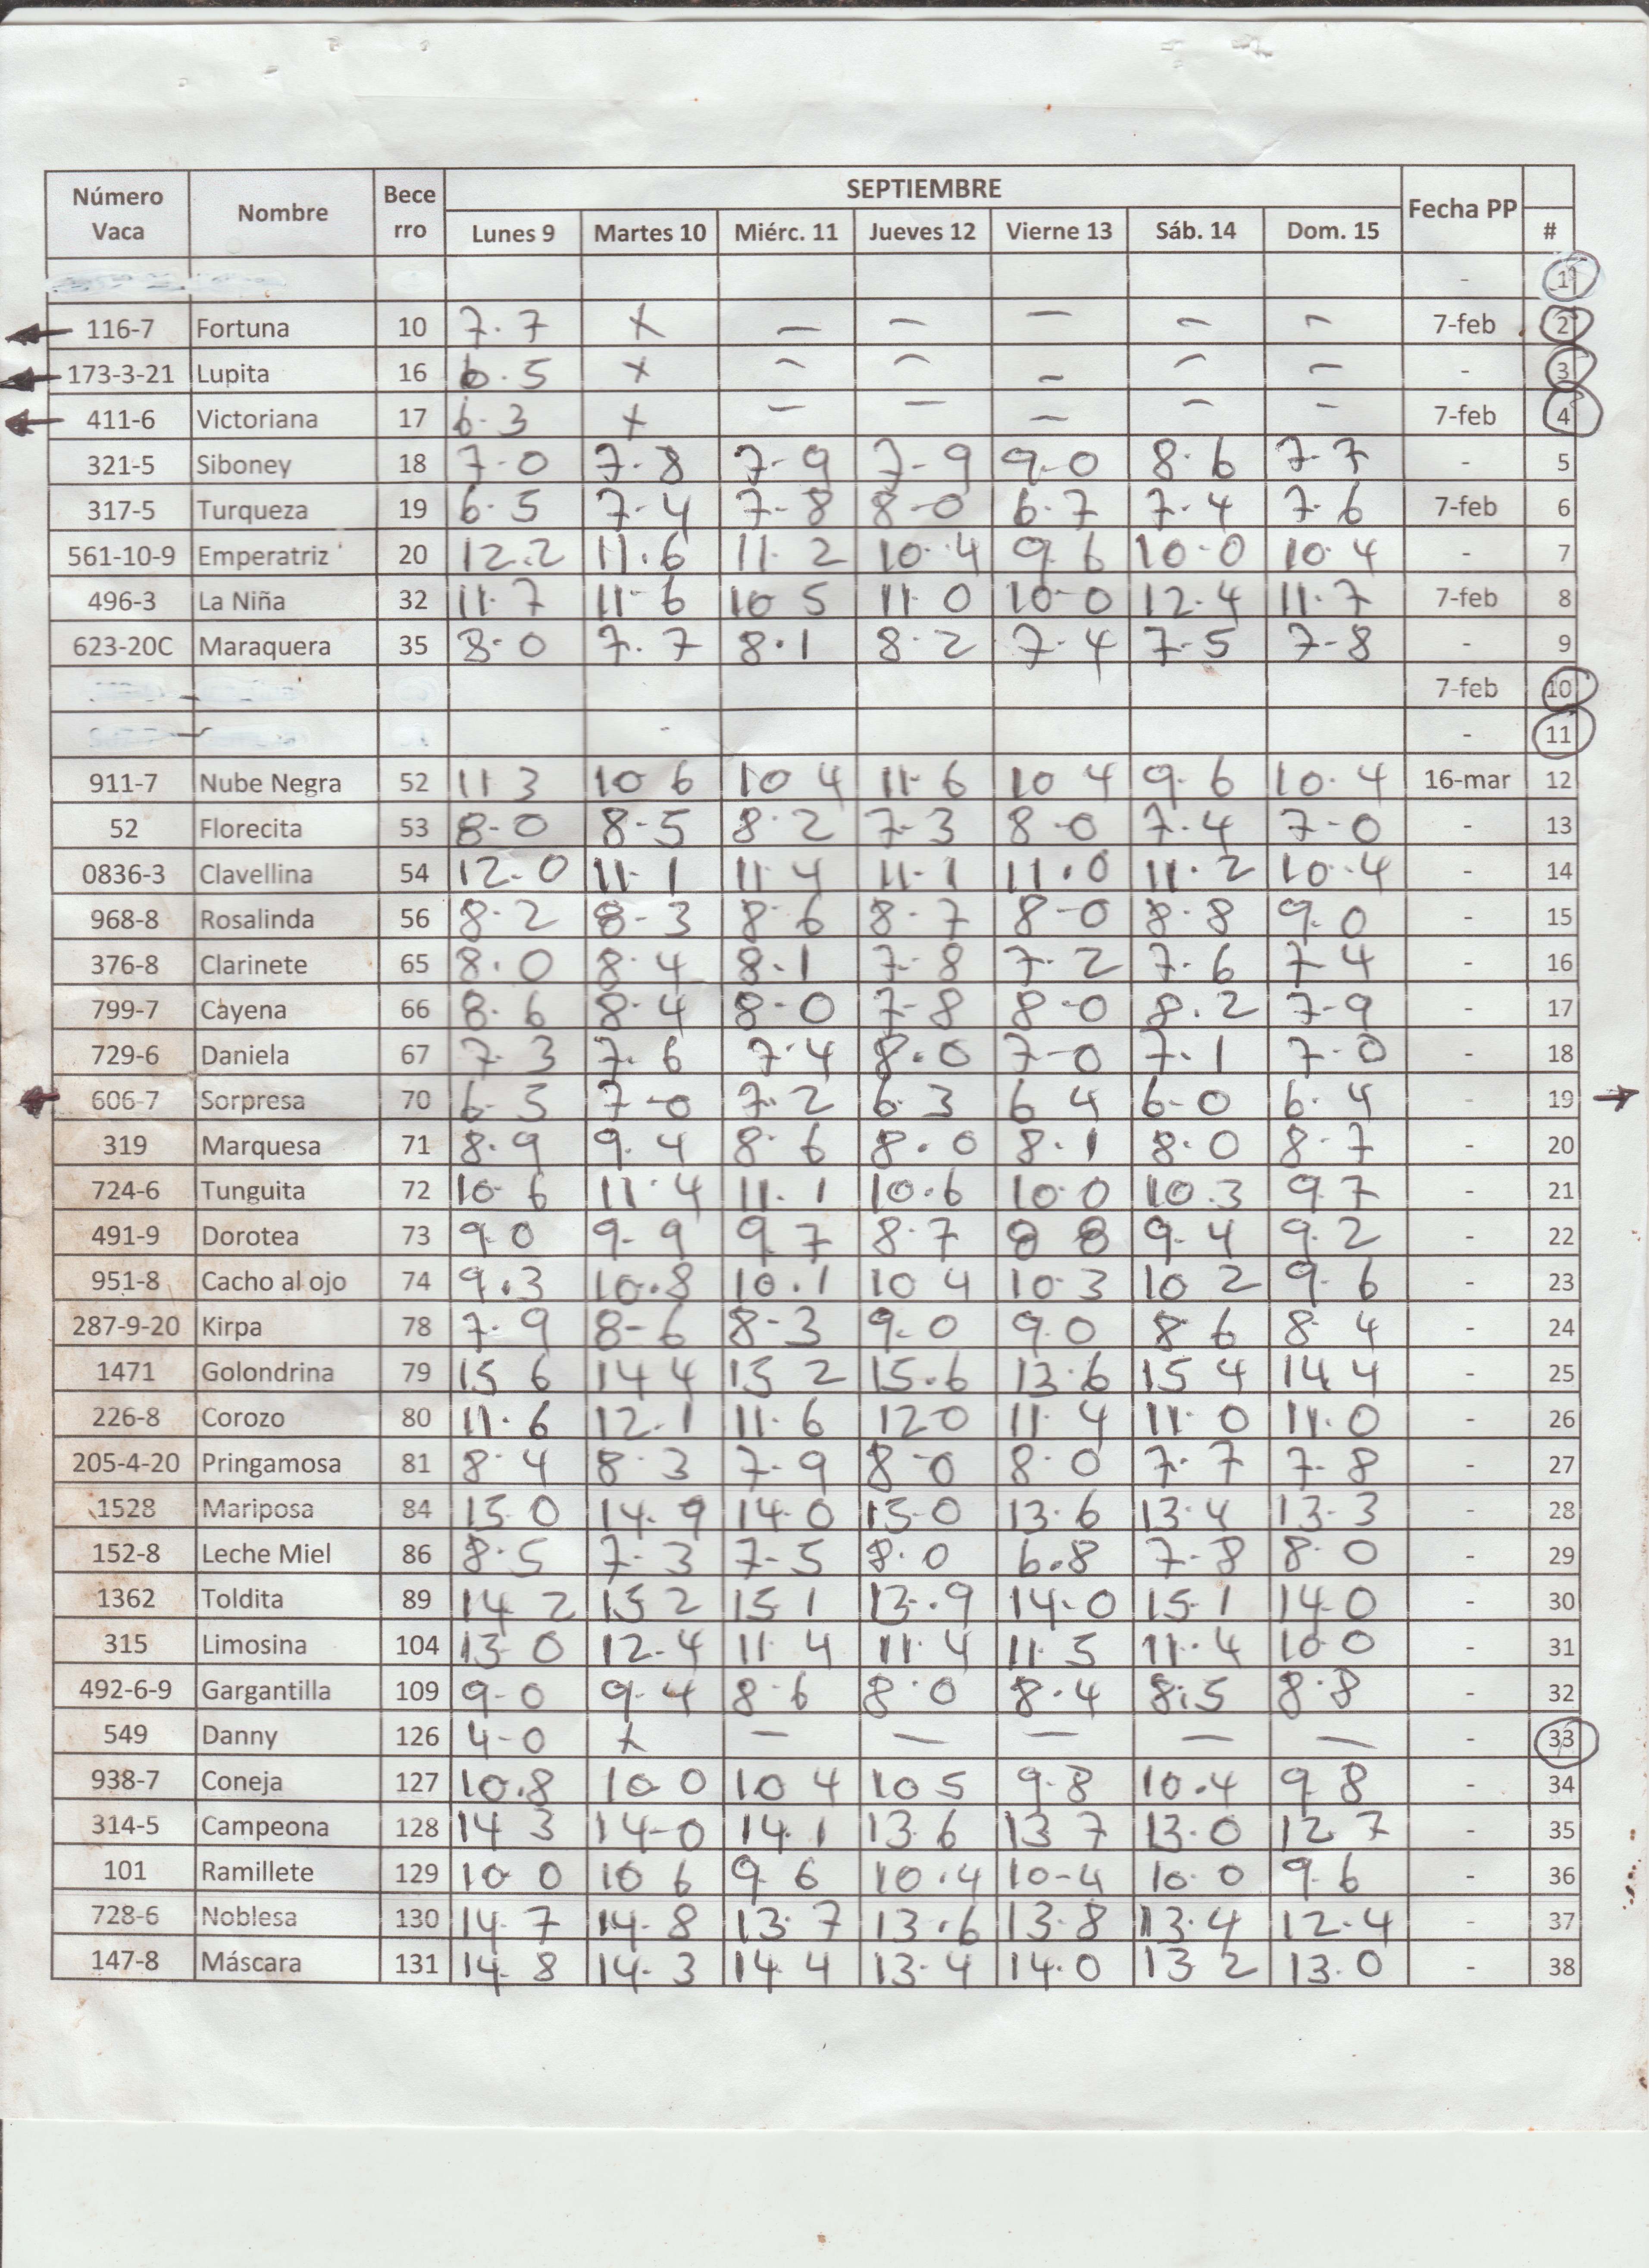 Número Vaca Nombre Bece rro SEPTIEMBRE Fecha PP #
Lunes 9 Martes 10 Miérc. 11 Jueves 12 Vierne 13 Sáb. 14 Dom. 15
- 1
116-7 Fortuna 10 7.7 x — — — — — 7-feb 2
173-3-21 Lupita 16 6.5 x — — — — — - 3
411-6 Victoriana 17 6.3 x — — — — — 7-feb 4
321-5 Siboney 18 7-0 7-8 7-9 7-9 9-0 8.6 7-7 - 5
317-5 Turqueza 19 6.5 7-4 7-8 8-0 6.7 7.4 7.6 7-feb 6
561-10-9 Emperatriz 20 12.2 11.6 11.2 10.4 9.6 10-0 10.4 - 7
496-3 La Niña 32 11.7 11-6 10 5 11.0 10-0 12.4 11.7 7-feb 8
623-20C Maraquera 35 8.0 7.7 8.1 8.2 7-4 7-5 7-8 - 9
7-feb 10
- 11
911-7 Nube Negra 52 11 3 10 6 10 4 11.6 10 4 9.6 10.4 16-mar 12
52 Florecita 53 8-0 8-5 8.2 7-3 8-0 7.4 7-0 - 13
0836-3 Clavellina 54 12.0 11-1 11 4 11-1 11.0 11.2 10.4 - 14
968-8 Rosalinda 56 8.2 8-3 8.6 8.7 8-0 8.8 9.0 - 15
376-8 Clarinete 65 8.0 8.4 8.1 7-8 7.2 7.6 7-4 - 16
799-7 Cayena 66 8.6 8.4 8-0 7-8 8-0 8.2 7-9 - 17
729-6 Daniela 67 7.3 7.6 7.4 8.0 7-0 7.1 7.0 - 18
606-7 Sorpresa 70 6-5 7-0 7.2 6.3 6 4 6-0 6.4 - 19
319 Marquesa 71 8.9 9.4 8.6 8.0 8.1 8.0 8.7 - 20
724-6 Tunguita 72 10.6 11.4 11.1 10.6 10.0 10.3 9.7 - 21
491-9 Dorotea 73 9.0 9-9 9.7 8.7 8 8 9.4 9.2 - 22
951-8 Cacho al ojo 74 9.3 10.8 10.1 10 4 10.3 10 2 9.6 - 23
287-9-20 Kirpa 78 7.9 8-6 8-3 9.0 9.0 8.6 8.4 - 24
1471 Golondrina 79 15 6 14 4 15 2 15.6 13.6 15 4 14 4 - 25
226-8 Corozo 80 11.6 12.1 11.6 12 0 11.4 11.0 11.0 - 26
205-4-20 Pringamosa 81 8.4 8.3 7-9 8-0 8.0 7.7 7-8 - 27
1528 Mariposa 84 15.0 14.9 14.0 15-0 13.6 13.4 13.3 - 28
152-8 Leche Miel 86 8.5 7-3 7-5 8.0 6.8 7-8 8.0 - 29
1362 Toldita 89 14 2 15 2 15 1 13.9 14.0 15.1 14.0 - 30
315 Limosina 104 13 0 12-4 11 4 11.4 11.5 11.4 10 0 - 31
492-6-9 Gargantilla 109 9-0 9-4 8.6 8.0 8.4 8.5 8.8 - 32
549 Danny 126 4-0 x — — — — — - 33
938-7 Coneja 127 10.8 10 0 10 4 10 5 9.8 10.4 9 8 - 34
314-5 Campeona 128 14 3 14-0 14.1 13.6 13 7 13.0 12.7 - 35
101 Ramillete 129 10 0 10 6 9.6 10.4 10-4 10.0 9.6 - 36
728-6 Noblesa 130 14.7 14.8 13.7 13.6 13.8 13.4 12.4 - 37
147-8 Máscara 131 14.8 14.3 14.4 13.4 14.0 13 2 13.0 - 38